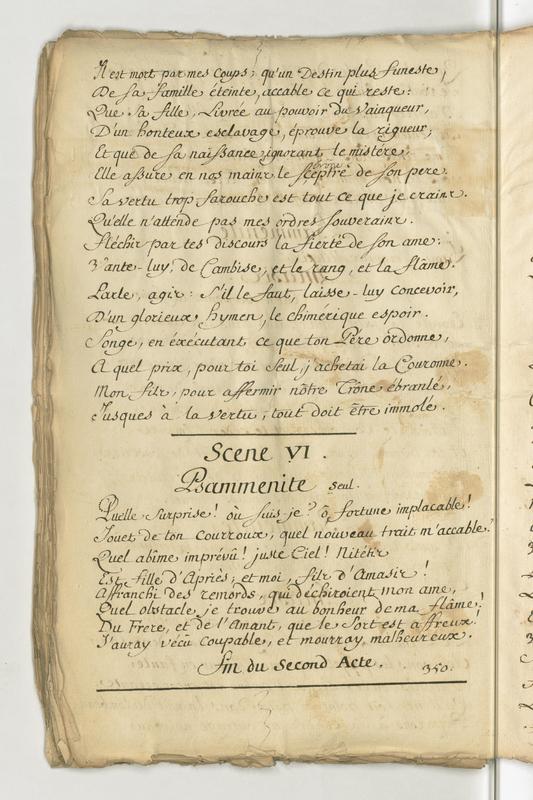 Il est mort par mes coups; qu'un Destin plus funeste,
De sa famille éteinte, accable ce qui reste:
Que sa fille, Livrée au pouvoir du Vainqueur,
D'un honteux esclavage, éprouve la rigueur;
Et que de sa naissance ignorant le mistére,
Elle assure en nos mains le sceptre de son pere.
Sa vertu trop farouche est tout ce que je crains.
Qu'elle n'attende pas mes ordres souverains.
Fléchis par tes discours la fierté de son ame:
Vante-luy, de Cambise, et le rang, et la flâme.
Parle, agis: S'il le faut, laisse-luy concevoir,
D'un glorieux hymen, le chimérique espoir.
Songe, en éxécutant ce que ton Pére ordonne,
A quel prix, pour toi seul, j'achetai la Couronne.
Mon fils, pour affermir nôtre Trône ébranlé,
Jusques à la vertu, tout doit être immolé.
Scene VI.
Psammenite seul.
Quelle surprise! où suis-je? ô fortune implacable!
Jouet de ton courroux, quel nouveau trait m'accable?
Quel abîme imprévû! juste Ciel! Nitétis
Est fille d'Apriès; et moi, fils d'Amasis!
Affranchi des remords, qui déchiroient mon ame,
Quel obstacle je trouve au bonheur de ma flâme!
Du Frere, et de l'Amant, que le Sort est affreux!
J'auray vécu coupable, et mourray malheureux.
fin du Second Acte. 350.